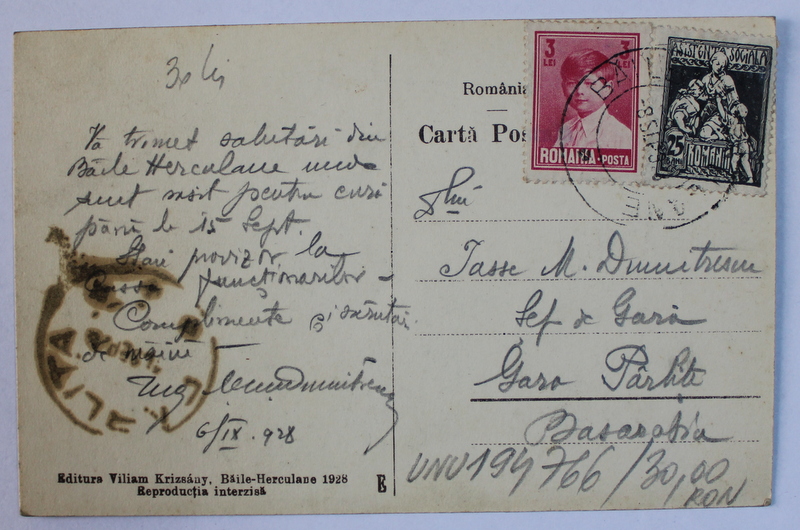 30 lei
Vă trimet salutări din
Băile Herculane unde
sunt sosit pentru cură
până la 15 Sept.
Stau provizor la
Cassa funcționarilor –
Complimente și sărutări
de mâini
Ing. Dumitrescu
6/IX 928
Editura Viliam Krizsány, Băile-Herculane 1928
Reproducția interzisă
România
Cartă Pos
3 LEI 3 LEI
ROMANIA·POSTA
ASISTENȚA SOCIALA
25
ROMANIA
Dlui
Tasse M. Dumitrescu
Șef de Gară
Gara Pârlița
Basarabia
UNU 194766/30,00
RON